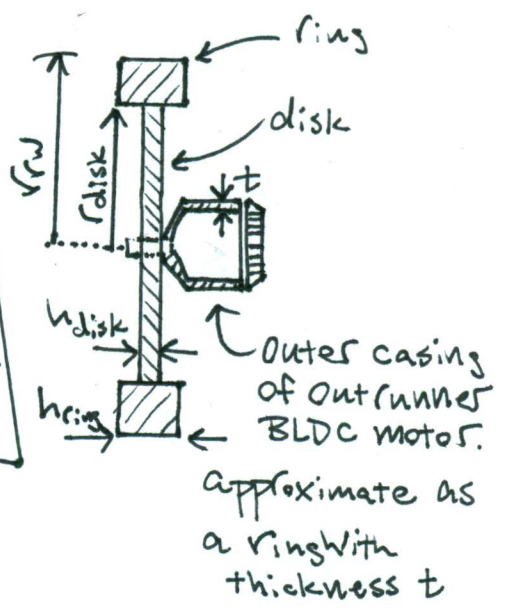 ring
disk
r_rw
r_disk
t
h_disk
h_ring
outer casing
of outrunner
BLDC motor.
approximate as
a ring with
thickness t